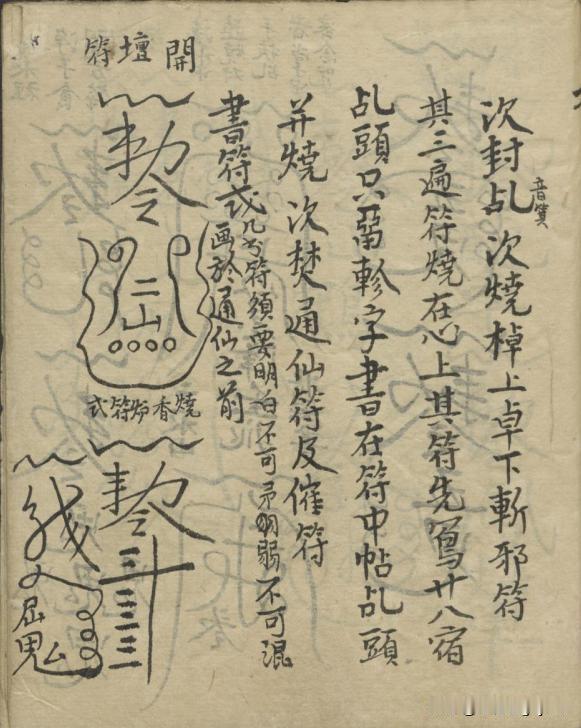 次封乩音箕次燒棹上卓下斬邪符
其三遍符燒在心上其符先寫廿八宿
乩頭只畱軫字書在符中帖乩頭
并燒次焚通仙符及催符
書符式凡書符須要明白不可
弱不可混
画於通仙之前
開壇符
敕令
二山
燒香炉符式
敕令
三三三三
屈鬼